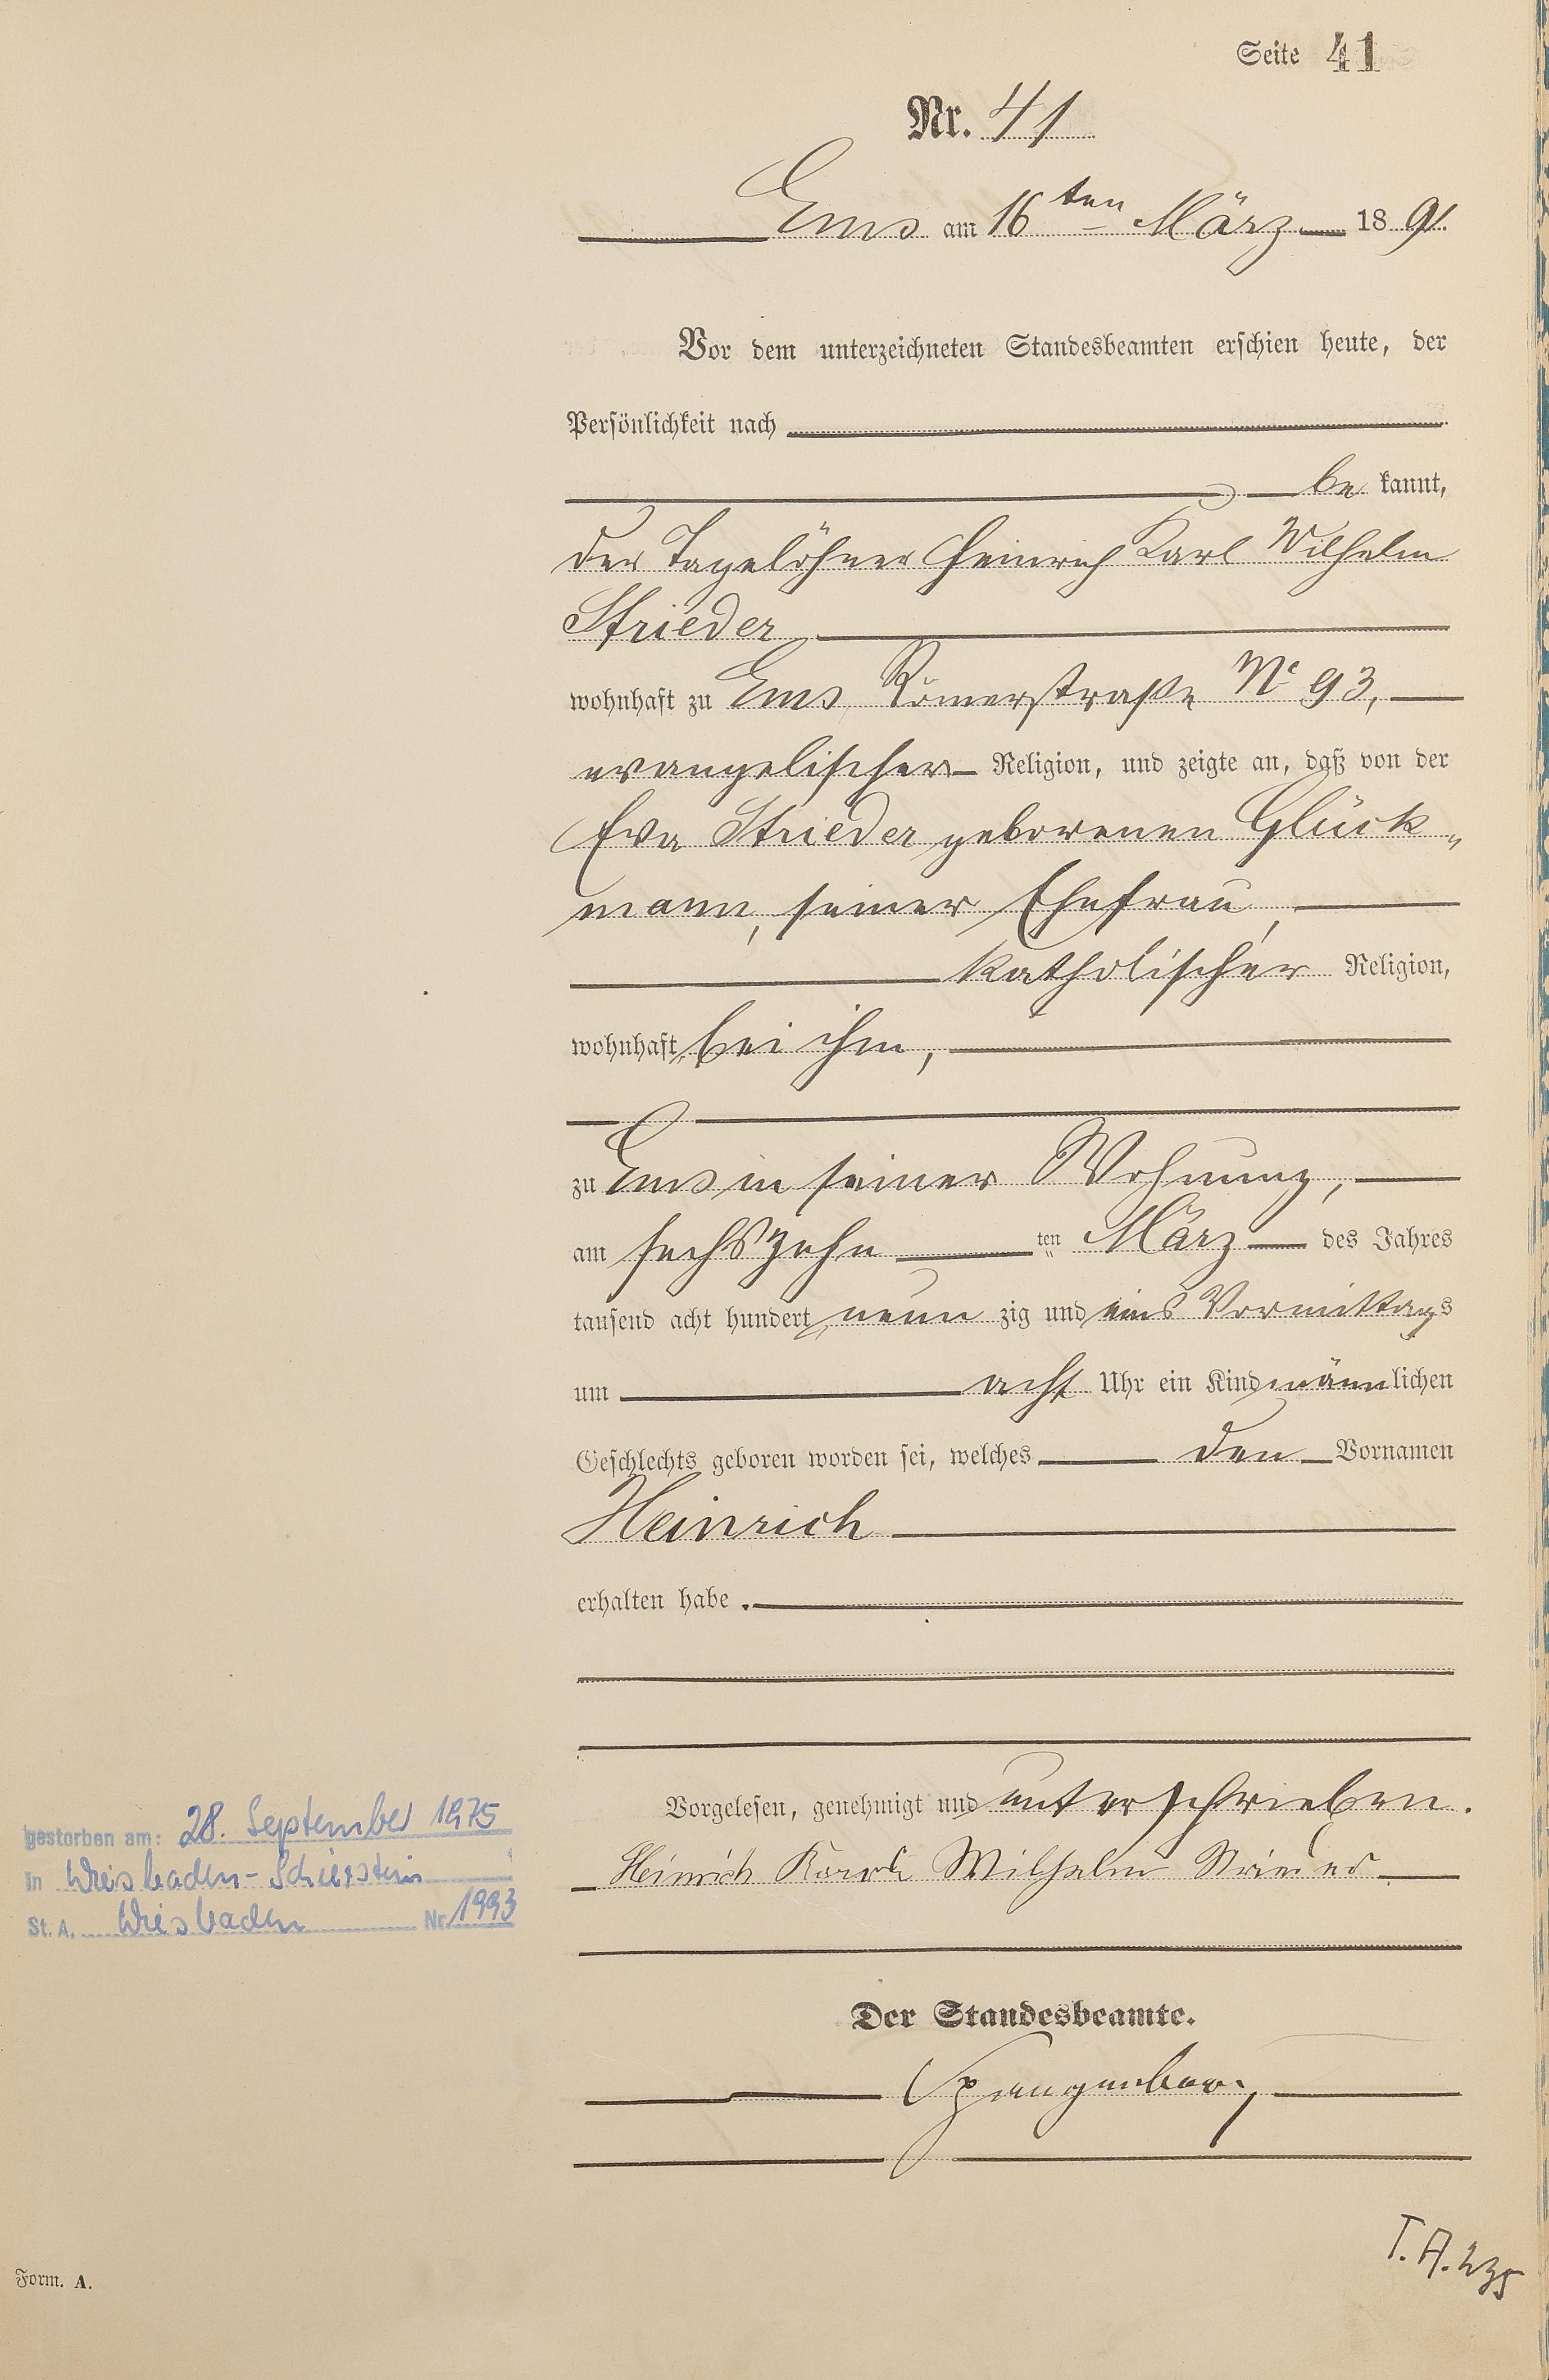 Seite 41
Nr. 41
Ems am 16ten März 1891.
Vor dem unterzeichneten Standesbeamten erschien heute, der
Persönlichkeit nach
be kannt,
der Tagelöhner Heinrich Karl Wilhelm
Strieder
wohnhaft zu Ems, Römerstraße No 93,
evangelischer Religion, und zeigte an, daß von der
Eva Strieder geborenen Glück„
mann, seiner Ehefrau,
katholischer Religion,
wohnhaft bei ihm,
zu Ems in seiner Wohnung,
am sechszehn ten März des Jahres
tausend acht hundert neun zig und eins Vormittags
um acht Uhr ein Kind männlichen
Geschlechts geboren worden sei, welches den Vornamen
Heinrich
erhalten habe.
Vorgelesen, genehmigt und unterschrieben.
Heinrich Karl Wilhelm Strieder
gestorben am: 28. September 1975
in Wiesbaden-Schierstein
St. A. Wiesbaden Nr. 1993
Der Standesbeamte.
Spangenberg
T. A. 235
Form. A.